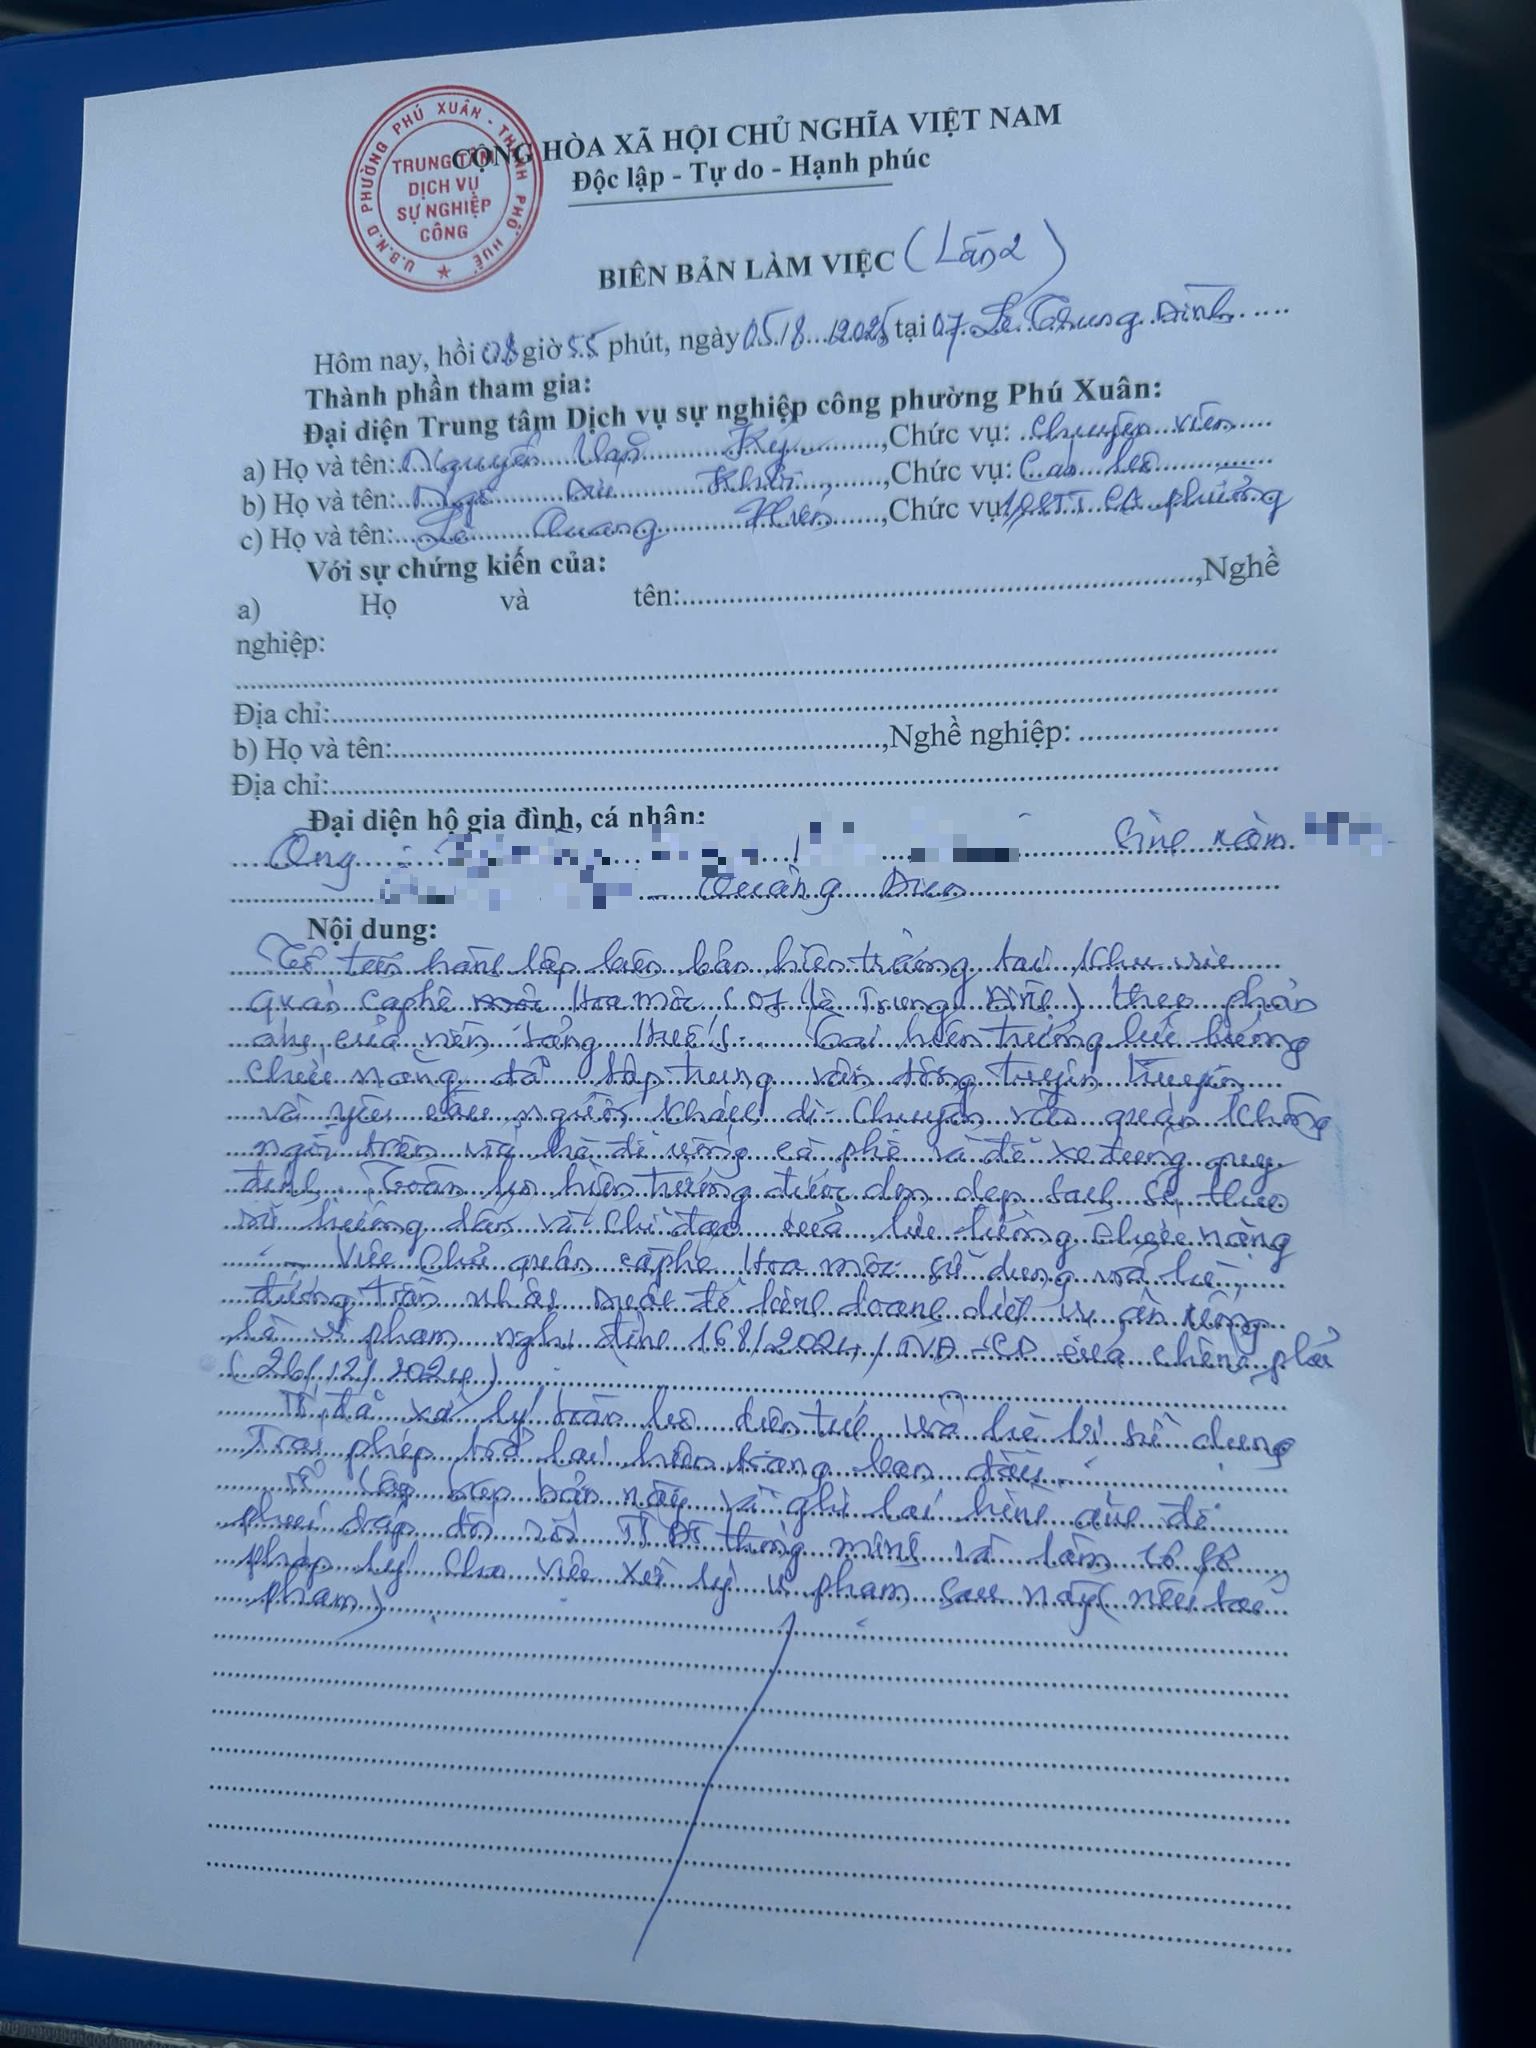 U.B.N.D PHƯỜNG PHÚ XUÂN - THÀNH PHỐ HUẾ
TRUNG TÂM
DỊCH VỤ
SỰ NGHIỆP
CÔNG
CỘNG HÒA XÃ HỘI CHỦ NGHĨA VIỆT NAM
Độc lập - Tự do - Hạnh phúc
BIÊN BẢN LÀM VIỆC (Lần 2)
Hôm nay, hồi 08 giờ 55 phút, ngày 05/8/2025 tại 07 Lê Trung Đình
Thành phần tham gia:
Đại diện Trung tâm Dịch vụ sự nghiệp công phường Phú Xuân:
a) Họ và tên: Nguyễn Văn Kỳ, Chức vụ: Chuyên viên
b) Họ và tên: Ngô, Chức vụ: Cán bộ
c) Họ và tên: Lê Quang, Chức vụ: CA phường
Với sự chứng kiến của:
a) Họ và tên:, Nghề
nghiệp:
Địa chỉ:
b) Họ và tên:, Nghề nghiệp:
Địa chỉ:
Đại diện hộ gia đình, cá nhân:
Ông: Sinh năm
Quảng Điền
Nội dung:
Tổ tiến hành lập biên bản hiện trường tại khu vực
quán caphê Hoa mộc (07 Lê Trung Đình) theo phản
ánh của nền tảng Huế S. Tại hiện trường lực lượng
chức năng đã tập trung vận động tuyên truyền
và yêu cầu người khách di chuyển vào quán không
ngồi trên vỉa hè để uống cà phê và để xe đúng quy
định. Toàn bộ hiện trường được dọn dẹp sạch sẽ theo
sự hướng dẫn và chỉ đạo của lực lượng chức năng
- Việc chủ quán caphe Hoa mộc sử dụng vỉa hè,
đường trần nhân để kinh doanh dịch vụ ăn uống
là vi phạm nghị định 168/2024/NĐ-CP của chính phủ
(26/12/2024)
Tổ đã xử lý toàn bộ diện tích vỉa hè bị sử dụng
trái phép trở lại hiện trạng ban đầu.
Tổ lập biên bản này và ghi lại hình ảnh để
phúc đáp đối với TT ĐT thông minh và làm cơ sở
pháp lý cho việc xử lý vi phạm sau này (nếu tái
phạm)